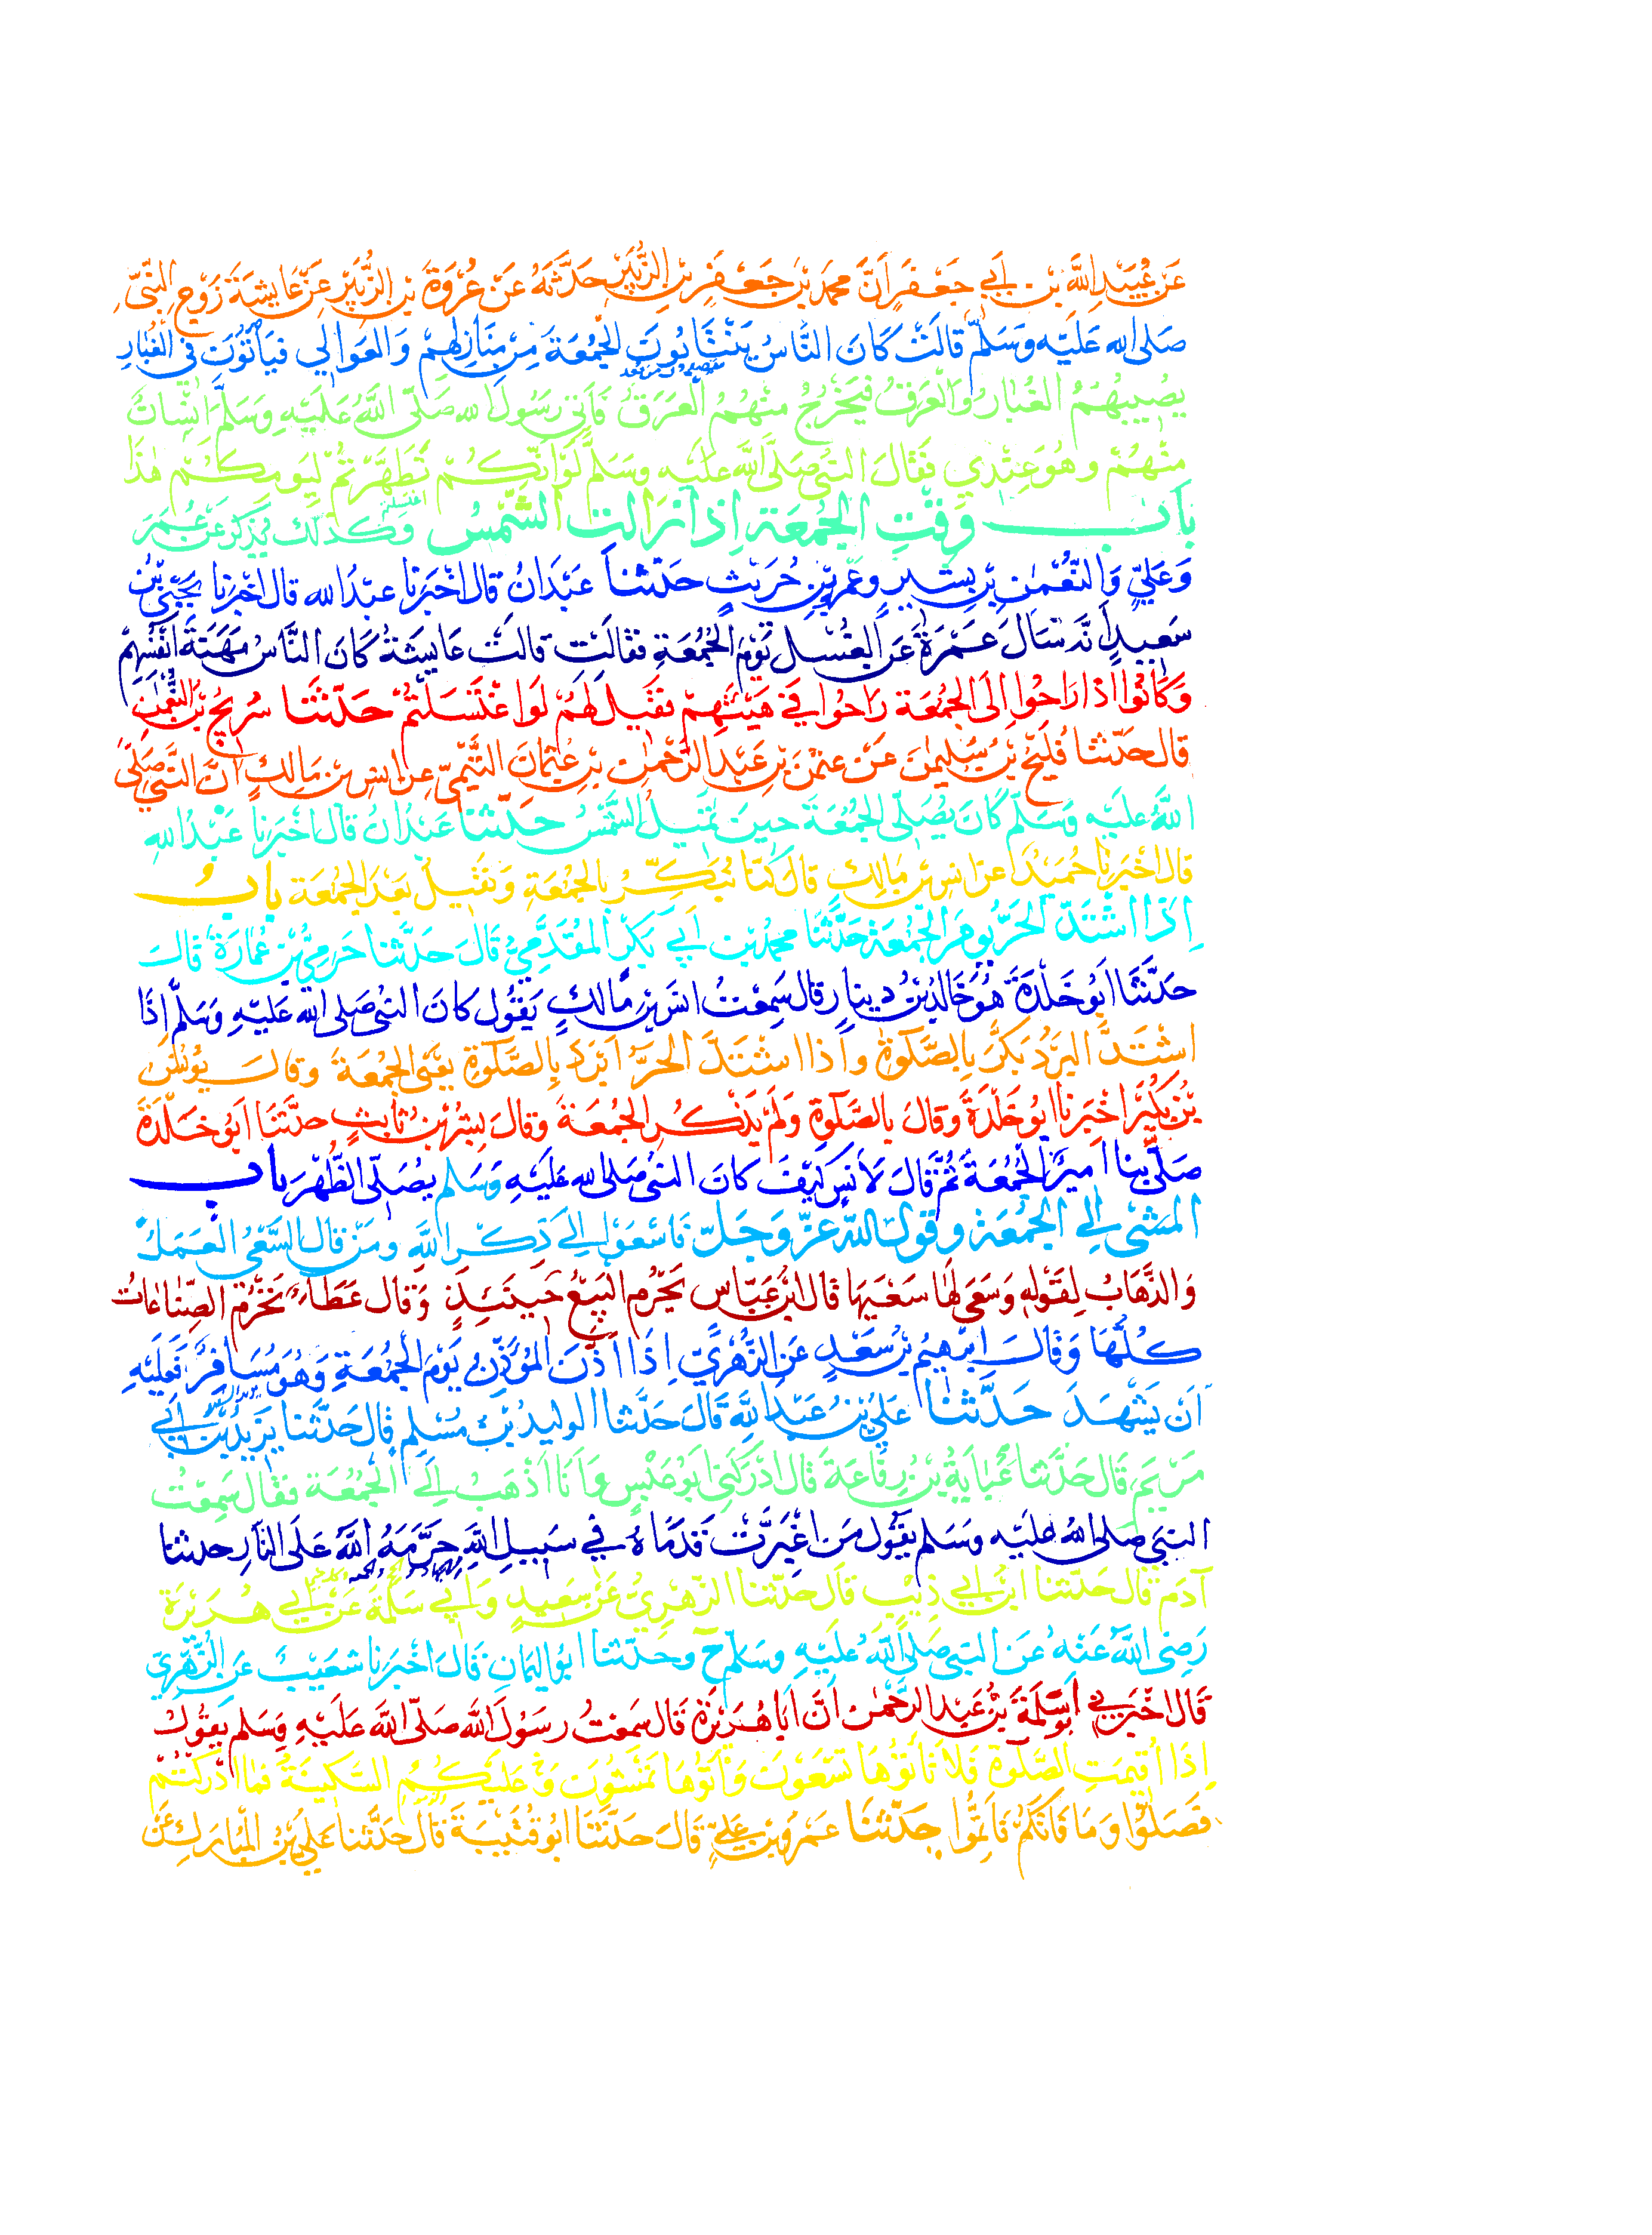 عَنْ عُبَيْدِ اللَّهِ بْنِ أَبِي جَعْفَرٍ أَنَّ مُحَمَّدَ بْنَ جَعْفَرِ بْنِ الزُّبَيْرِ حَدَّثَهُ عَنْ عُرْوَةَ بْنِ الزُّبَيْرِ عَنْ عَايِشَةَ زَوْجِ النَّبِيِّ
صَلَى الله عَلَيْهِ وَسَلَّمَ قَالَتْ كَانَ النَّاسُ يَنْتَابُونَ الْجُمُعَةَ مِنْ مَنَازِلِهِمْ وَالْعَوَالِي فَيَأْتُونَ فِي الْغُبَارِ
يُصِيبُهُمُ الْغُبَارُ وَالْعَرَقُ فَيَخْرُجُ مِنْهُمُ الْعَرَقُ فَأَتَى رَسُولَ الله صَلَّى اللَّهُ عَلَيْهِ وَسَلَّمَ إِنْسَانٌ
مِنْهُمْ وَهُوَ عِنْدِي فَقَالَ النَّبِيُّ صَلَّى اللَّهُ عَلَيْهِ وَسَلَّمَ لَوْ أَنَّكُمْ تَطَهَّرْتُمْ لِيَوْمِكُمْ هَذَا
بَابُ وَقْتِ الْجُمُعَةِ إِذَا زَالَتِ الشَّمْسُ وَكَذَلِكَ يُذْكَرُ عَنْ عُمَرَ
وَعَلِيٍّ وَالنُّعْمٰنِ بْنِ بَشِيرٍ وَعَمْرِو بْنِ حُرَيْثٍ حَدَّثَنَا عَبْدَانُ قَالَ أَخْبَرَنَا عَبْدُ الله قَالَ أَخْبَرَنَا يَحْيَى بْنُ
سَعِيدٍ أَنَّهُ سَأَلَ عَمْرَةَ عَنِ الْغُسْلِ يَوْمَ الْجُمُعَةِ فَقَالَتْ قَالَتْ عَايِشَةُ كَانَ النَّاسُ مَهَنَةَ أَنْفُسِهِمْ
وَكَانُوا إِذَا رَاحُوا إِلَى الْجُمُعَةِ رَاحُوا فِي هَيْئَتِهِمْ فَقِيلَ لَهُمْ لَوِ اغْتَسَلْتُمْ حَدَّثَنَا سُرَيْجُ بْنُ النُّعْمٰنِ
قَالَ حَدَّثَنَا فُلَيْحُ بْنُ سُلَيْمٰنَ عَنْ عُثْمٰنَ بْنِ عَبْدِ الرَّحْمٰنِ بْنِ عُثْمَانَ التَّيْمِيِّ عَنْ أَنَسِ بْنِ مَالِكٍ أَنَّ النَّبِيَّ صَلَّى
اللَّهُ عَلَيْهِ وَسَلَّمَ كَانَ يُصَلِّي الْجُمُعَةَ حِينَ تَمِيلُ الشَّمْسُ حَدَّثَنَا عَبْدَانُ قَالَ أَخْبَرَنَا عَبْدُ اللهِ
قَالَ أَخْبَرَنَا حُمَيْدٌ عَنْ أَنَسِ بْنِ مَالِكٍ قَالَ كُنَّا نُبَكِّرُ بِالْجُمُعَةِ وَنَقِيلُ بَعْدَ الْجُمُعَةِ بَابُ
إِذَا اشْتَدَّ الْحَرُّ يَوْمَ الْجُمُعَةِ حَدَّثَنَا مُحَمَّدُ بْنُ أَبِي بَكْرٍ الْمُقَدَّمِيُّ قَالَ حَدَّثَنَا حَرَمِيُّ بْنُ عُمَارَةَ قَالَ
حَدَّثَنَا أَبُو خَلْدَةَ هُوَ خَالِدُ بْنُ دِينَارٍ قَالَ سَمِعْتُ أَنَسَ بْنَ مَالِكٍ يَقُولُ كَانَ النَّبِيُّ صَلَى الله عَلَيْهِ وَسَلَّمَ إِذَا
اشْتَدَّ الْبَرْدُ بَكَّرَ بِالصَّلَوٰةِ وَإِذَا اشْتَدَّ الْحَرُّ أَبْرَدَ بِالصَّلَوٰةِ يَعْنِي الْجُمُعَةَ وَقَالَ يُونُسُ
بْنُ بُكَيْرٍ أَخْبَرَنَا أَبُو خَلْدَةَ وَقَالَ بِالصَّلَوٰةِ وَلَمْ يَذْكُرِ الْجُمُعَةَ وَقَالَ بِشْرُ بْنُ ثَابِتٍ حَدَّثَنَا أَبُو خَلْدَةَ
صَلَّى بِنَا أَمِيرٌ الْجُمُعَةَ ثُمَّ قَالَ لِأَنَسٍ كَيْفَ كَانَ النَّبِيُّ صَلَى الله عَلَيْهِ وَسَلَم يُصَلِّي الظُّهْرَ بَابُ
الْمَشْيِ إِلَى الْجُمُعَةِ وَقَوْلِ اللَّهِ عَزَّ وَجَلَّ فَاسْعَوْا إِلَى ذِكْرِ اللَّهِ وَمَنْ قَالَ السَّعْيُ الْعَمَلُ
وَالذَّهَابُ لِقَوْلِهِ وَسَعَى لَهَا سَعْيَهَا قَالَ ابْنُ عَبَّاسٍ يَحْرُمُ الْبَيْعُ حِينَئِذٍ وَقَالَ عَطَاءٌ تَحْرُمُ الصِّنَاعَاتُ
كُلُّهَا وَقَالَ إِبْرٰهِيمُ بْنُ سَعْدٍ عَنِ الزُّهْرِيِّ إِذَا أَذَّنَ الْمُؤَذِّنُ يَوْمَ الْجُمُعَةِ وَهُوَ مُسَافِرٌ فَعَلَيْهِ
أَنْ يَشْهَدَ حَدَّثَنَا عَلِيُّ بْنُ عَبْدِ اللَّهِ قَالَ حَدَّثَنَا الْوَلِيدُ بْنُ مُسْلِمٍ قَالَ حَدَّثَنَا يَزِيدُ بْنُ أَبِي
مَرْيَمَ قَالَ حَدَّثَنَا عَبَايَةُ بْنُ رِفَاعَةَ قَالَ أَدْرَكَنِي أَبُو عَبْسٍ وَأَنَا أَذْهَبُ إِلَى الْجُمُعَةِ فَقَالَ سَمِعْتُ
النَّبِيَّ صَلَى اللهُ عَلَيْهِ وَسَلَم يَقُولُ مَنِ اغْبَرَّتْ قَدَمَاهُ فِي سَبِيلِ اللَّهِ حَرَّمَهُ اللَّهُ عَلَى النَّارِ حدثنا
آدَمُ قَالَ حَدَّثَنَا ابْنُ أَبِي ذِيْبٍ قَالَ حَدَّثَنَا الزُّهْرِيُّ عَنْ سَعِيدٍ وَأَبِي سَلَمَةَ عَنْ أَبِي هُرَيْرَةَ
رَضِيَ اللَّهُ عَنْهُ عَنِ النَّبِيِّ صَلَّى اللَّهُ عَلَيْهِ وَسَلَّمَ ح وَحَدَّثَنَا أَبُو الْيَمَانِ قَالَ أَخْبَرَنَا شُعَيْبٌ عَنِ الزُّهْرِيِّ
قَالَ أَخْبَرَنِي أَبُو سَلَمَةَ بْنُ عَبْدِ الرَّحْمٰنِ أَنَّ أَبَا هُرَيْرَةَ قَالَ سَمِعْتُ رَسُولَ اللَّهِ صَلَّى اللَّهُ عَلَيْهِ وَسَلَم يَقُولُ
إِذَا أُقِيمَتِ الصَّلَوٰةُ فَلَا تَأْتُوهَا تَسْعَوْنَ وَأْتُوهَا تَمْشُونَ وَعَلَيْكُمُ السَّكِينَةُ فَمَا أَدْرَكْتُمْ
فَصَلُّوا وَمَا فَاتَكُمْ فَأَتِمُّوا حَدَّثَنَا عَمْرُو بْنُ عَلِيٍّ قَالَ حَدَّثَنَا أَبُو قُتَيْبَةَ قَالَ حَدَّثَنَا عَلِيُّ بْنُ الْمُبَارَكِ عَنْ